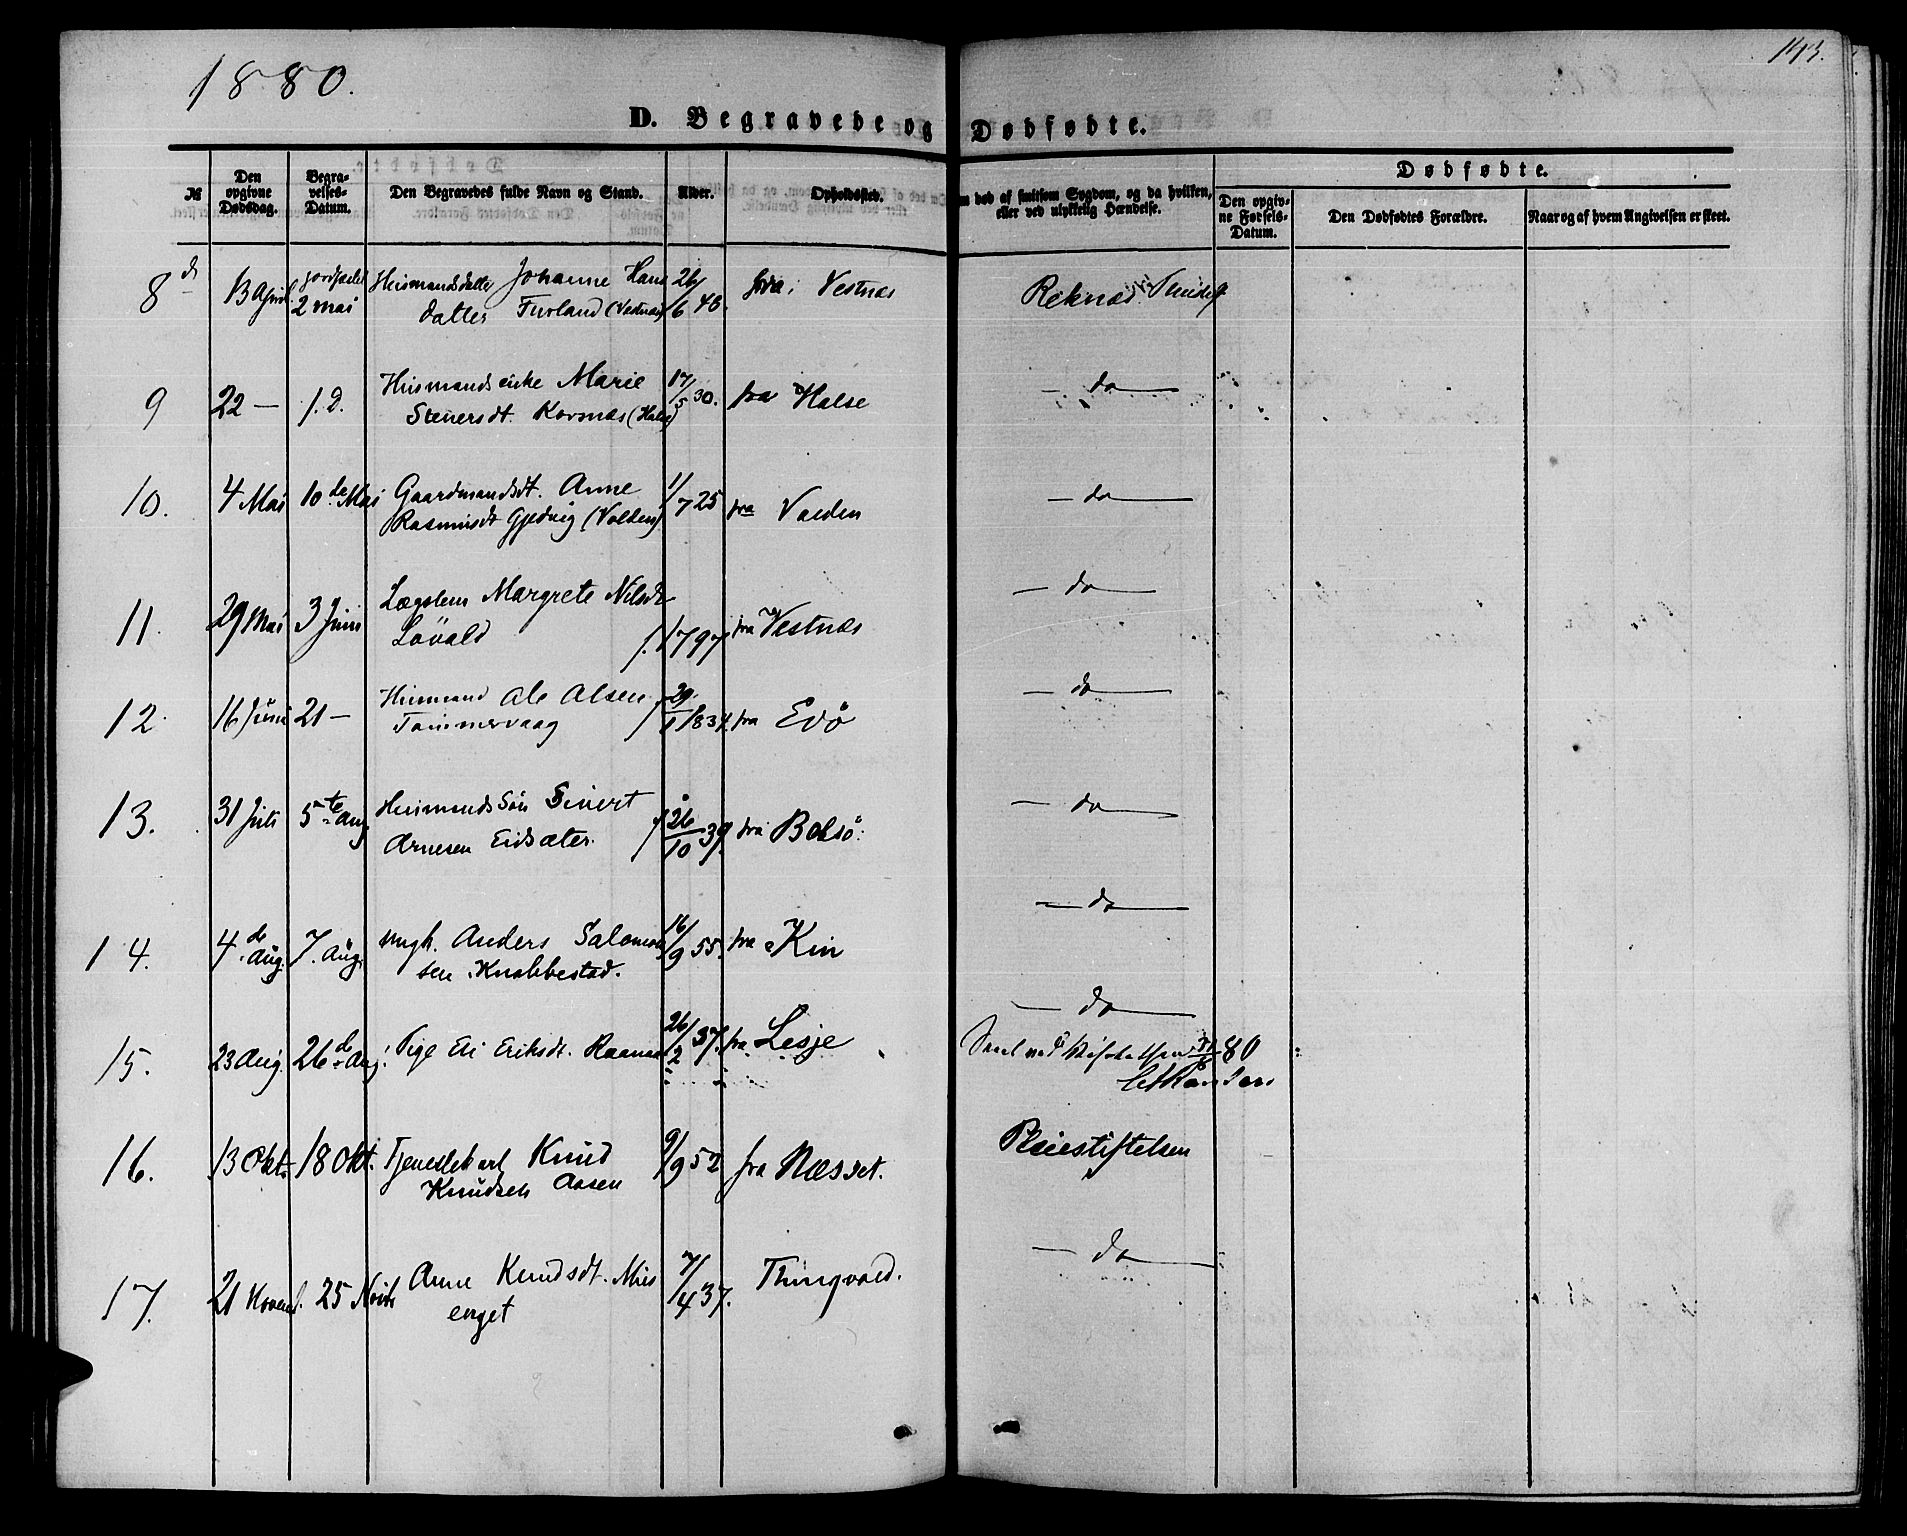 1880.
143.
D. Begravede og Dødfødte.
№
Den opgivne Dødsdag.
Begravelses-Datum.
Den Begravedes fulde Navn og Stand.
Alder.
Opholdssted.
død af smitsom Sygdom, og da hvilken, eller ved ulykkelig Hændelse.
Dødfødte.
Den opgivne Førsels-Datum.
Den Dødfødtes Forældre.
Naar og af hvem Angivelsen er skeet.
8 13 April jordfæstet Husmandsdatter Johanne Hans 26/6 48. fra Vestnæs Reknæs
2 mai datter Furland (Vestnæs)
9 22 — 1. d. Husmands enke Marie 17/5 30. fra Halse — do —
Siversdt. Korsnæs (Halse)
10. 4 Mai 10de Mai Gaardmandsdt. Anne 1/7 25 fra Volden — do —
Rasmusdt Gjedvig (Volden)
11. 29 Mai 3 Juni Lægslem Margrete Nilsdt f. 1797 fra Vestnæs — do —
Lovald
12. 16 Juni 21 — Husmand Ole Olsen f 29/1 1834. fra Edø — do —
Tømmervaag
13. 31 Juli 5te Aug Husmands Søn Sivert f 26/10 39. fra Bolsø. — do —
Arnesen Eidsæter.
14. 4de Aug. 7. Aug. ungk. Anders Salomon 16/9 55. fra Kin — do —
sen Knabbestad.
15. 23 Aug. 26de Aug. Pige Eli Eriksdt. 26/2 37. fra Lesje — do —
80
16. 13 Okt. 18 Okt. Tjenestekarl Knud 9/9 52 fra Næsset. Pleiestiftelsen
Knudsen Aasen
17. 21 Novemb. 25 Novb Anne Knudsdt. Mies 7/4 37. Thingvold. — do —
enget